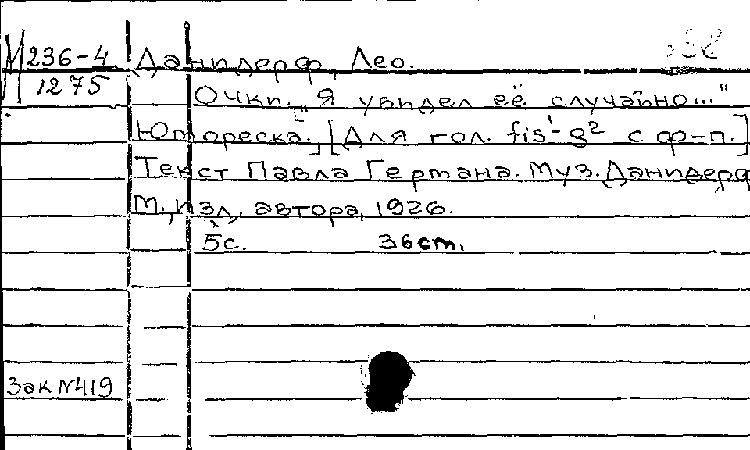 М 236-4 Данидерф, Лео.
1275
Очки. "Я увидел её случайно..."
Юмореска. [Для гол. fis¹-g² с ф-п.]
Текст Павла Германа. Муз. Данидерф
М., изд. автора, 1926.
5с. 36cm.
Зак №419